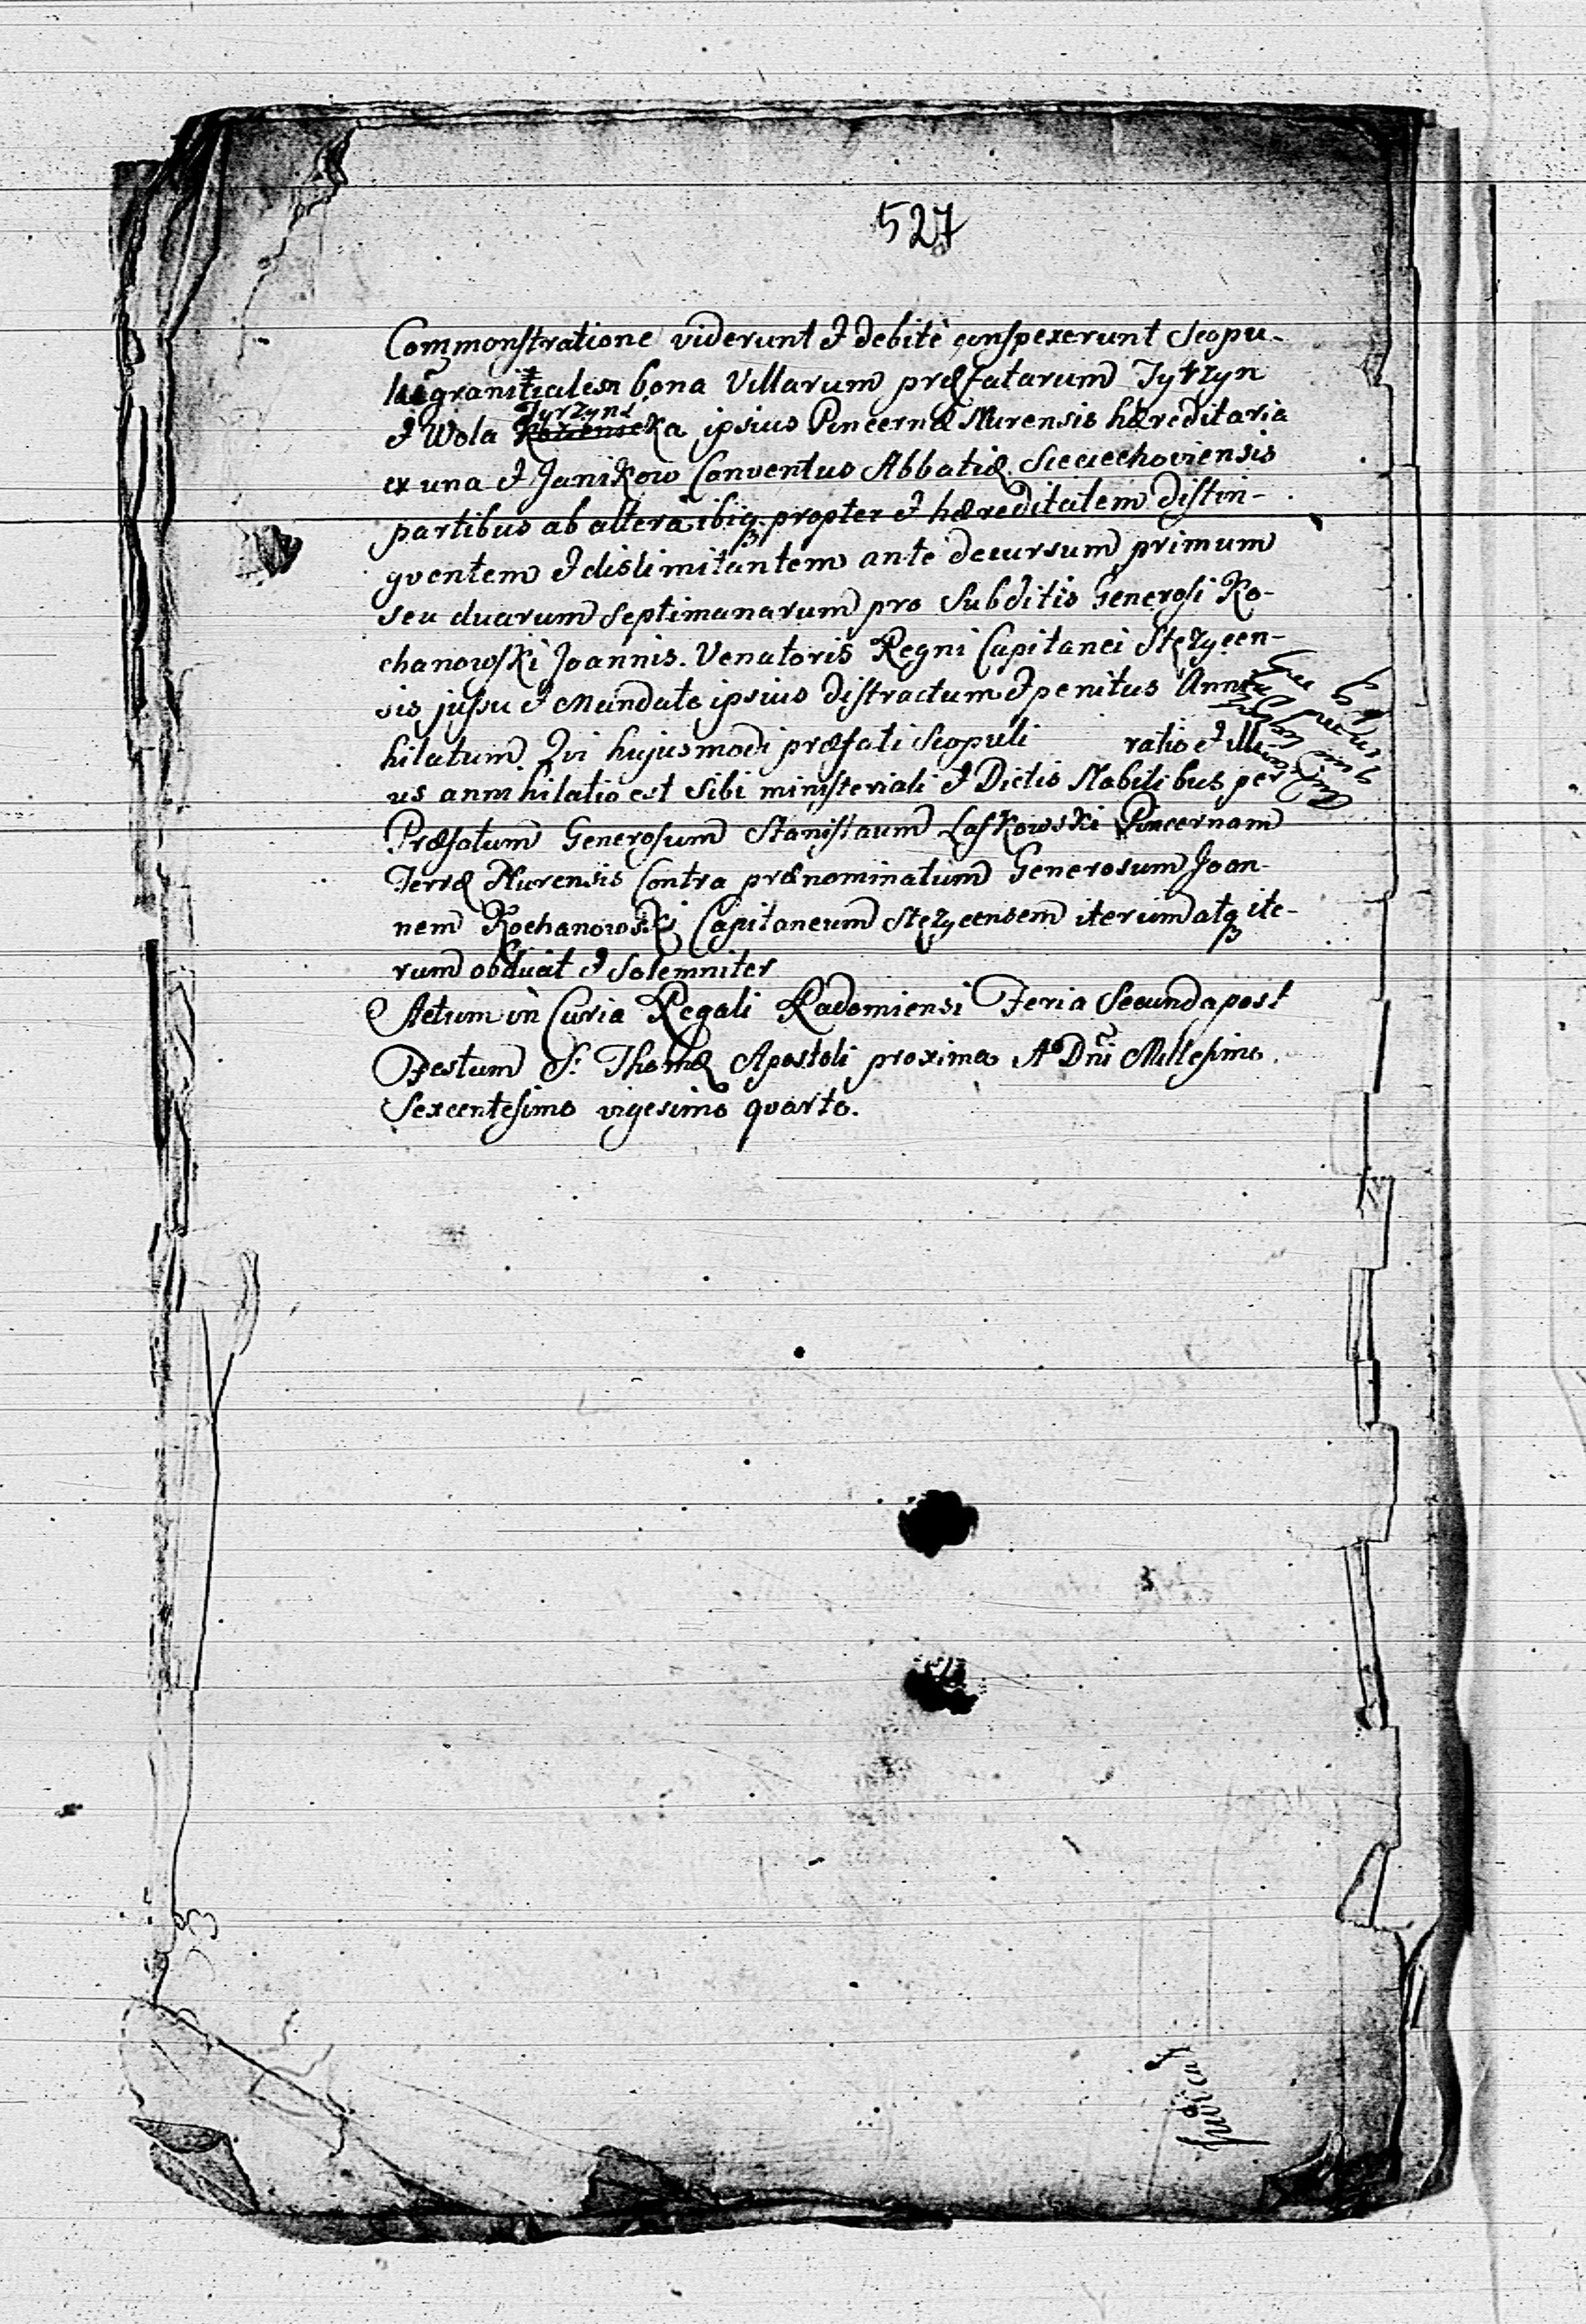 527
Commonstratione viderunt & debitè conspexerunt Scopu-
granitialem bona Villarum præfatarum Tyrzyn
& Wola Tyrzynska ipsius Pincernæ Nurensis hæreditaria
ex una & Janikow Conventus Abbatiæ Sieciechoviensis
partibus ab altera ibiq propter & hæreditatem distin-
gventem & dislimitantem ante decursum primum
seu duarum septimanarum pro Subditis Generosi Ko-
chanowski Joannis. Venatoris Regni Capitanei Stęzycen-
sis jussu & Mandato ipsius distractum & penitus Anni-
hilatum Qvi hujusmodi præfati Scopuli ratio & illi-
us annihilatio est sibi ministeriali & Dictis Nobilibus per
Præfatum Generosum Stanislaum Laskowski Pincernam
Terræ Nurensis Contra prænominatum Generosum Joan-
nem Kochanowski Capitaneum Stęzycensem iterum atq ite-
rum obducit & Solemniter
Actum in Curia Regali Radomiensi Feria Secunda post
Festum S. Thomæ Apostoli proxima Ao Dni Millesimo
Sexcentesimo vigesimo qvarto.